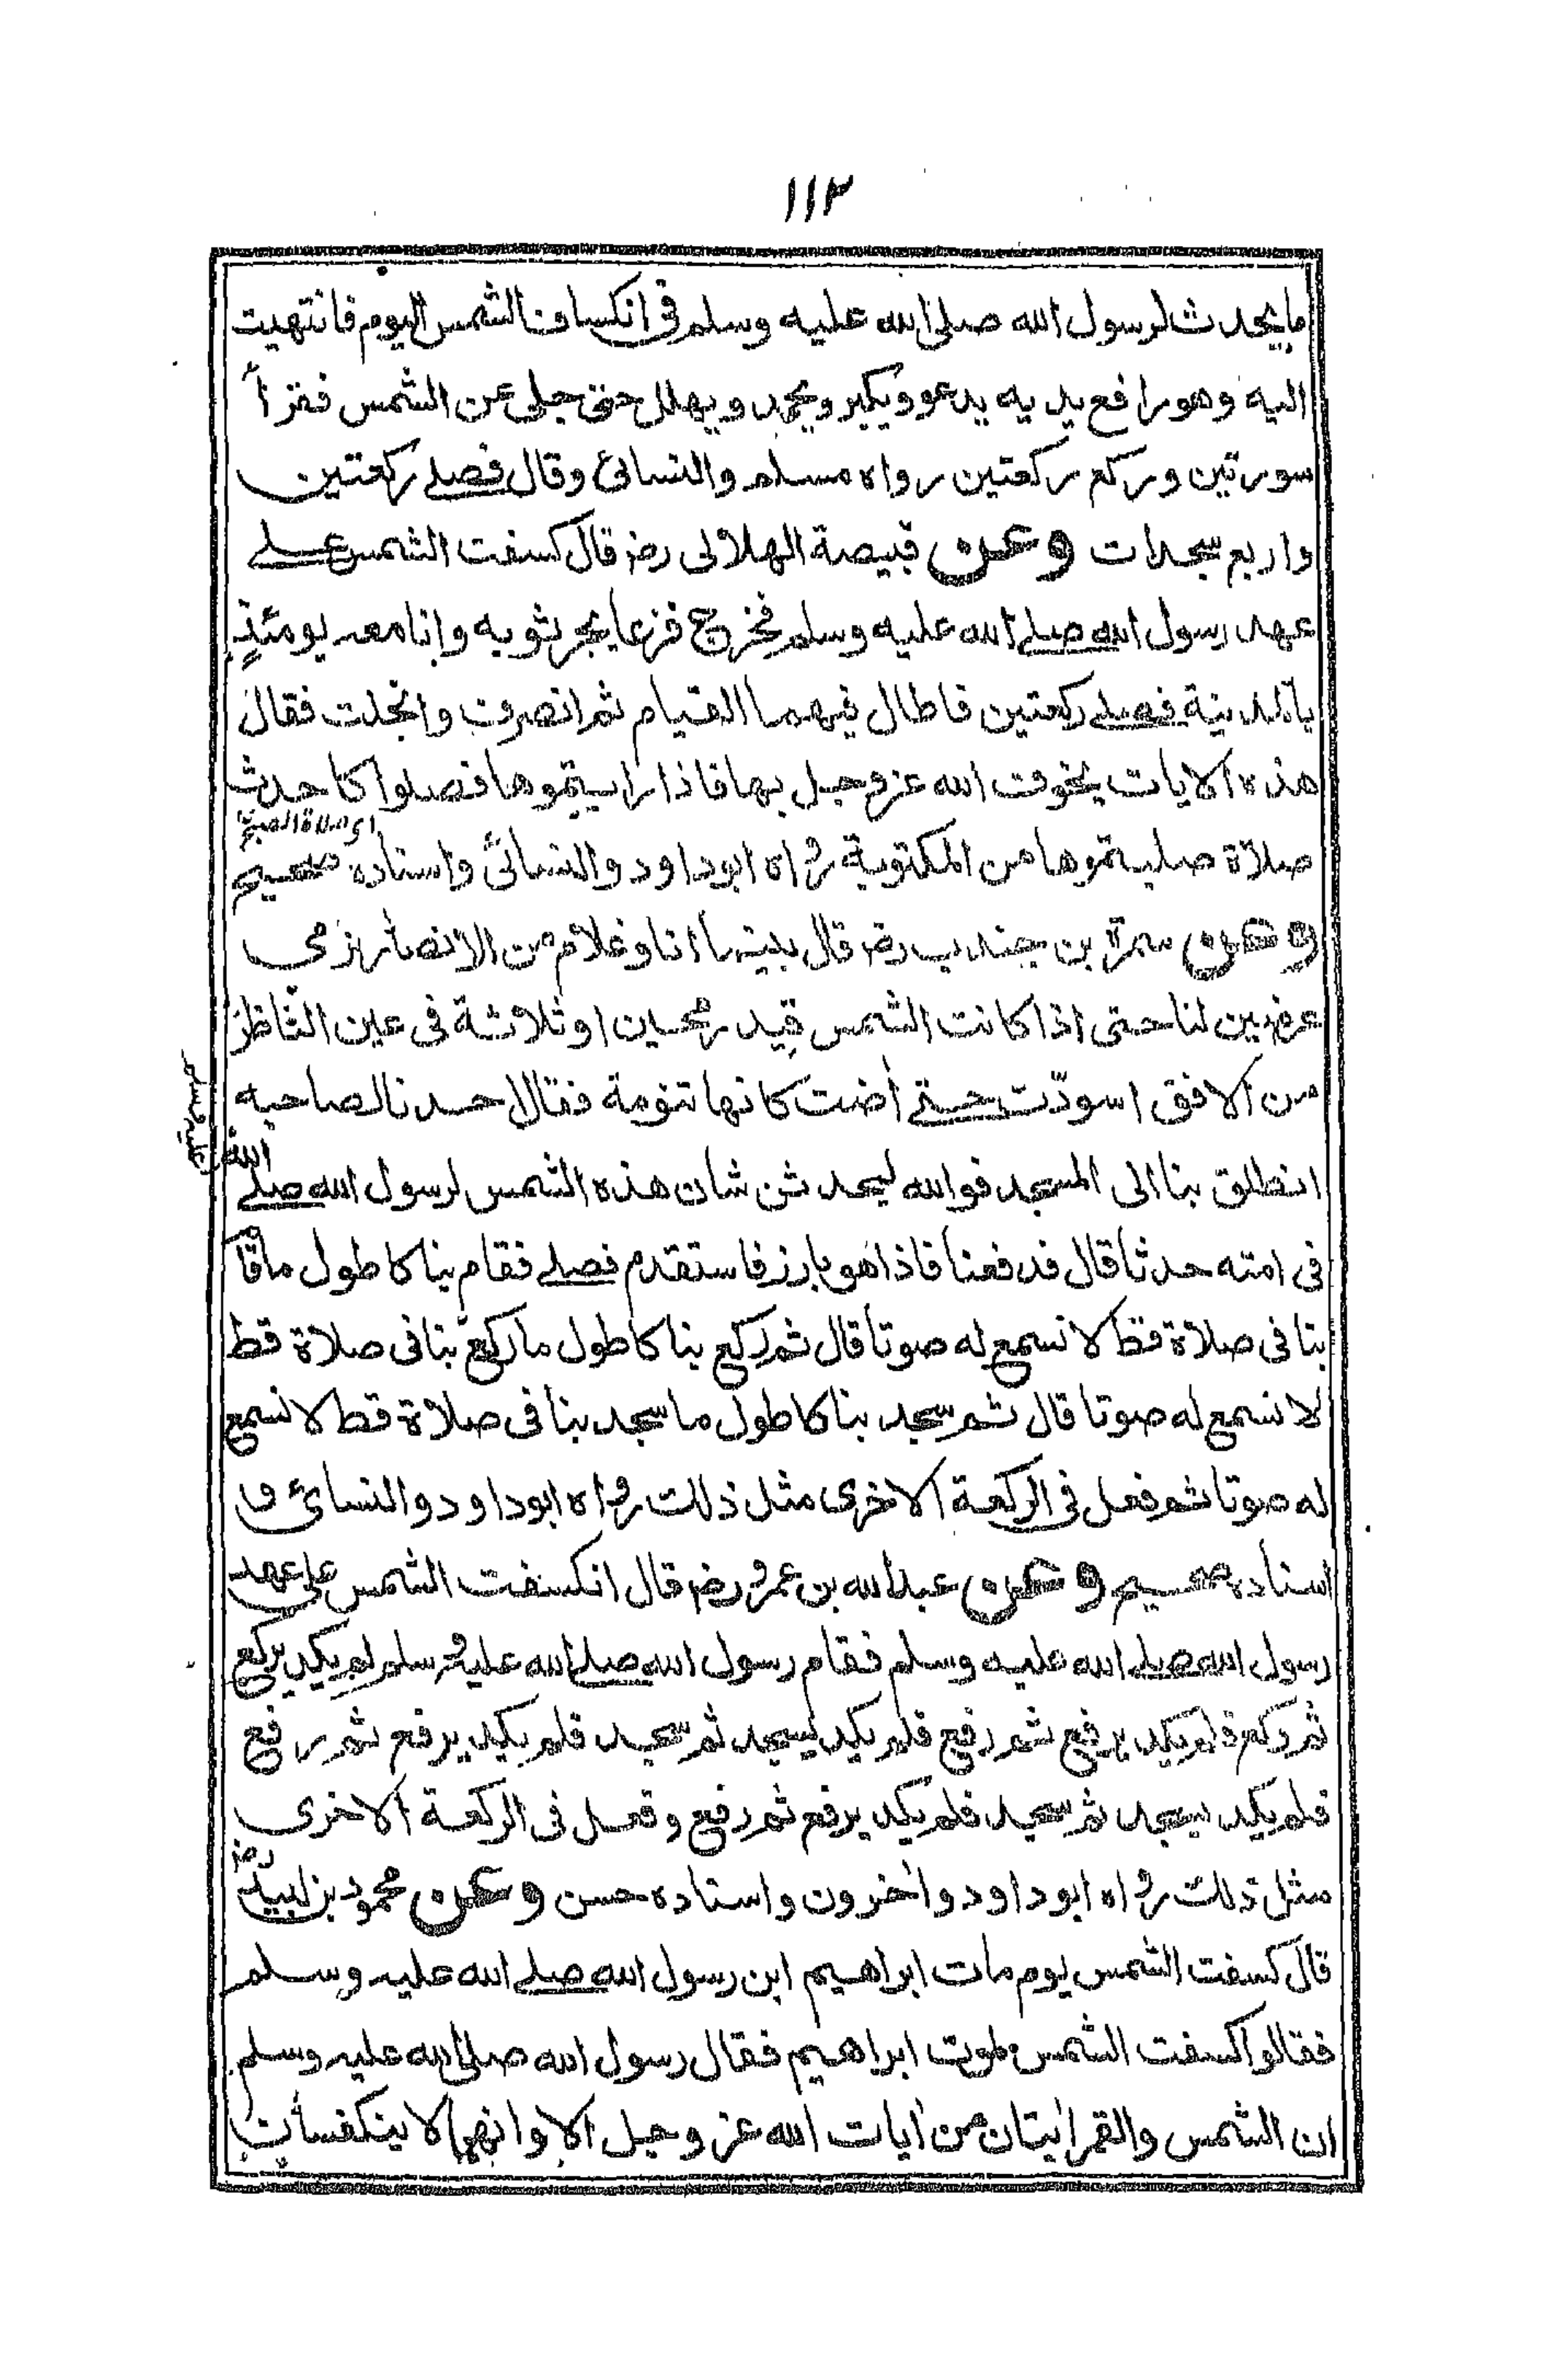 ١١٣
ما يحدث لرسول الله صلى الله عليه وسلم فى انكساف الشمس اليوم فانتهيت
اليه وهو رافع يديه يدعو ويكبر ويحمد ويهلل حتى جلى عن الشمس فقرأ
سورتين وركع ركعتين رواه مسلم والنسائى وقال فصلى ركعتين
واربع سجدات وعن قبيصة الهلالى رضـ قال كسفت الشمس على
عهد رسول الله صلى الله عليه وسلم فخرج فزعا يجر ثوبه وانا معه يومئذٍ
بالمدينة فصلى ركعتين فاطال فيهما القيام ثم انصرف وانجلت فقال
هذه الايات يخوف الله عز وجل بها فاذا رايتموها فصلوا كاحدث
اى صلاة الصبح
صلاة صليتموها من المكتوبة رواه ابوداود والنسائى واسناده صحيح
وعن سمرة بن جندب رضـ قال بينما انا وغلام من الانصار نرمى
غرضين لنا حتى اذا كانت الشمس قِيد رمحين او ثلاثة فى عين النّاظر
من الافق اسودّت حتى أضت كانها تنومة فقال احدنا لصاحبه
انطلق بنا الى المسجد فوالله ليحدثن شان هذه الشمس لرسول الله صلى
الله عليه وسلم
فى امته حدثا قال فدفعنا فاذا هو بارز فاستقدم فصلى فقام بنا كاطول ما قام
بنا فى صلاة قط لا نسمع له صوتا قال ثم ركع بنا كاطول ما ركع بنا فى صلاة قط
لا نسمع له صوتا قال ثم سجد بنا كاطول ما سجد بنا فى صلاة قط لا نسمع
له صوتا ثم فعل فى الركعة الاخرى مثل ذلك رواه ابوداود والنسائى و
اسناده صحيح وعن عبدالله بن عمرو رضـ قال انكسفت الشمس على عهد
رسول الله صلى الله عليه وسلم فقام رسول الله صلى الله عليه وسلم لم يكد يركع
ثم ركع فلم يكد يرفع ثم رفع فلم يكد يسجد ثم سجد فلم يكد يرفع ثم رفع
فلم يكد يسجد ثم سجد فلم يكد يرفع ثم رفع وفعل فى الركعة الاخرى
مثل ذلك رواه ابوداود واٰخرون واسناده حسن وعن محمود بن لبيد رضـ
قال كسفت الشمس يوم مات ابراهيم ابن رسول الله صلى الله عليه وسلم
فقالوا كسفت الشمس لموت ابراهيم فقال رسول الله صلى الله عليه وسلم
ان الشمس والقمر اٰيتان من اٰيات الله عز وجل الا وانهما لا ينكفسان